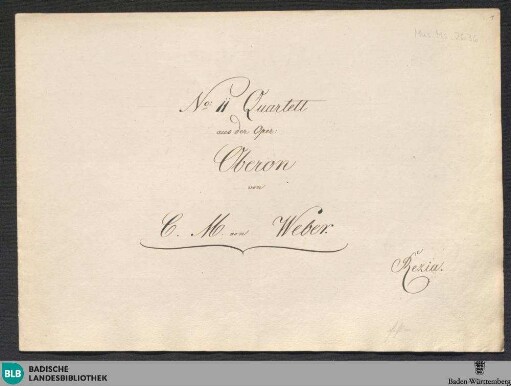 No 11 Quartett
aus der Oper
Oberon
von
C. M. von Weber.
Rezia.
BLB
BADISCHE
LANDESBIBLIOTHEK
Baden-Württemberg